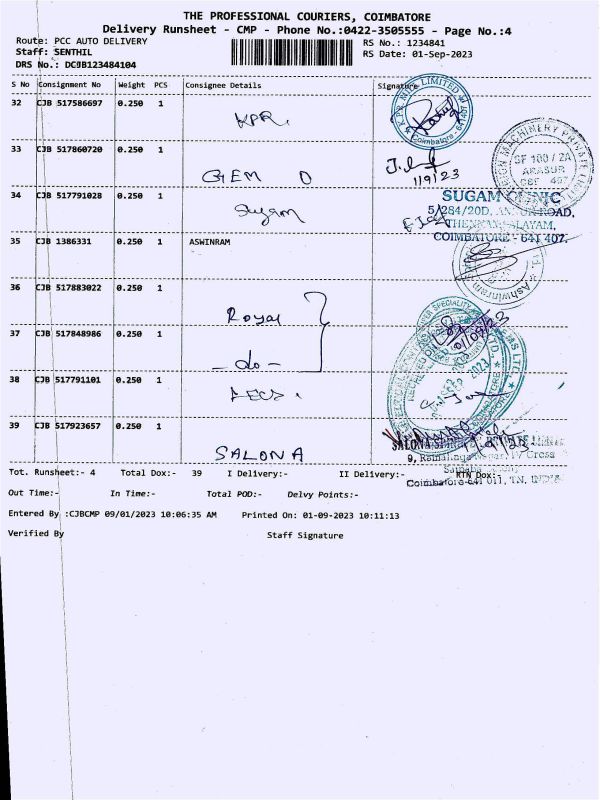 THE PROFESSIONAL COURIERS, COIMBATORE
Delivery Runsheet - CMP - Phone No.:0422-3505555 - Page No.:4
Route: PCC AUTO DELIVERY RS No.: 1234841
Staff: SENTHIL RS Date: 01-Sep-2023
DRS No.: DCJB123484104
S No Consignment No Weight PCS Consignee Details Signature
32 CJB 517586697 0.250 1
KPR. K.P.R. MILL LIMITED Coimbatore - 641407
33 CJB 517860720 0.250 1
GEM D 1/9/23 MACHINERY PRIVATE SF 100 / 2A ARASUR CBE 407
34 CJB 517791028 0.250 1
Sugam SUGAM CLINIC
5/284/20D, ROAD,
THENNAMPALAYAM,
COIMBATORE - 641 407.
35 CJB 1386331 0.250 1 ASWINRAM
Ashwinram
36 CJB 517883022 0.250 1
Royal 01/09/23
37 CJB 517848986 0.250 1
- do - SEP 2023
38 CJB 517791101 0.250 1
39 CJB 517923657 0.250 1
SALONA SALONA
9, Cross
Coimbatore-641 011, TN, INDIA
Tot. Runsheet:- 4 Total Dox:- 39 I Delivery:- II Delivery:- RTN Dox:-
Out Time:- In Time:- Total POD:- Delvy Points:-
Entered By :CJBCMP 09/01/2023 10:06:35 AM Printed On: 01-09-2023 10:11:13
Verified By Staff Signature